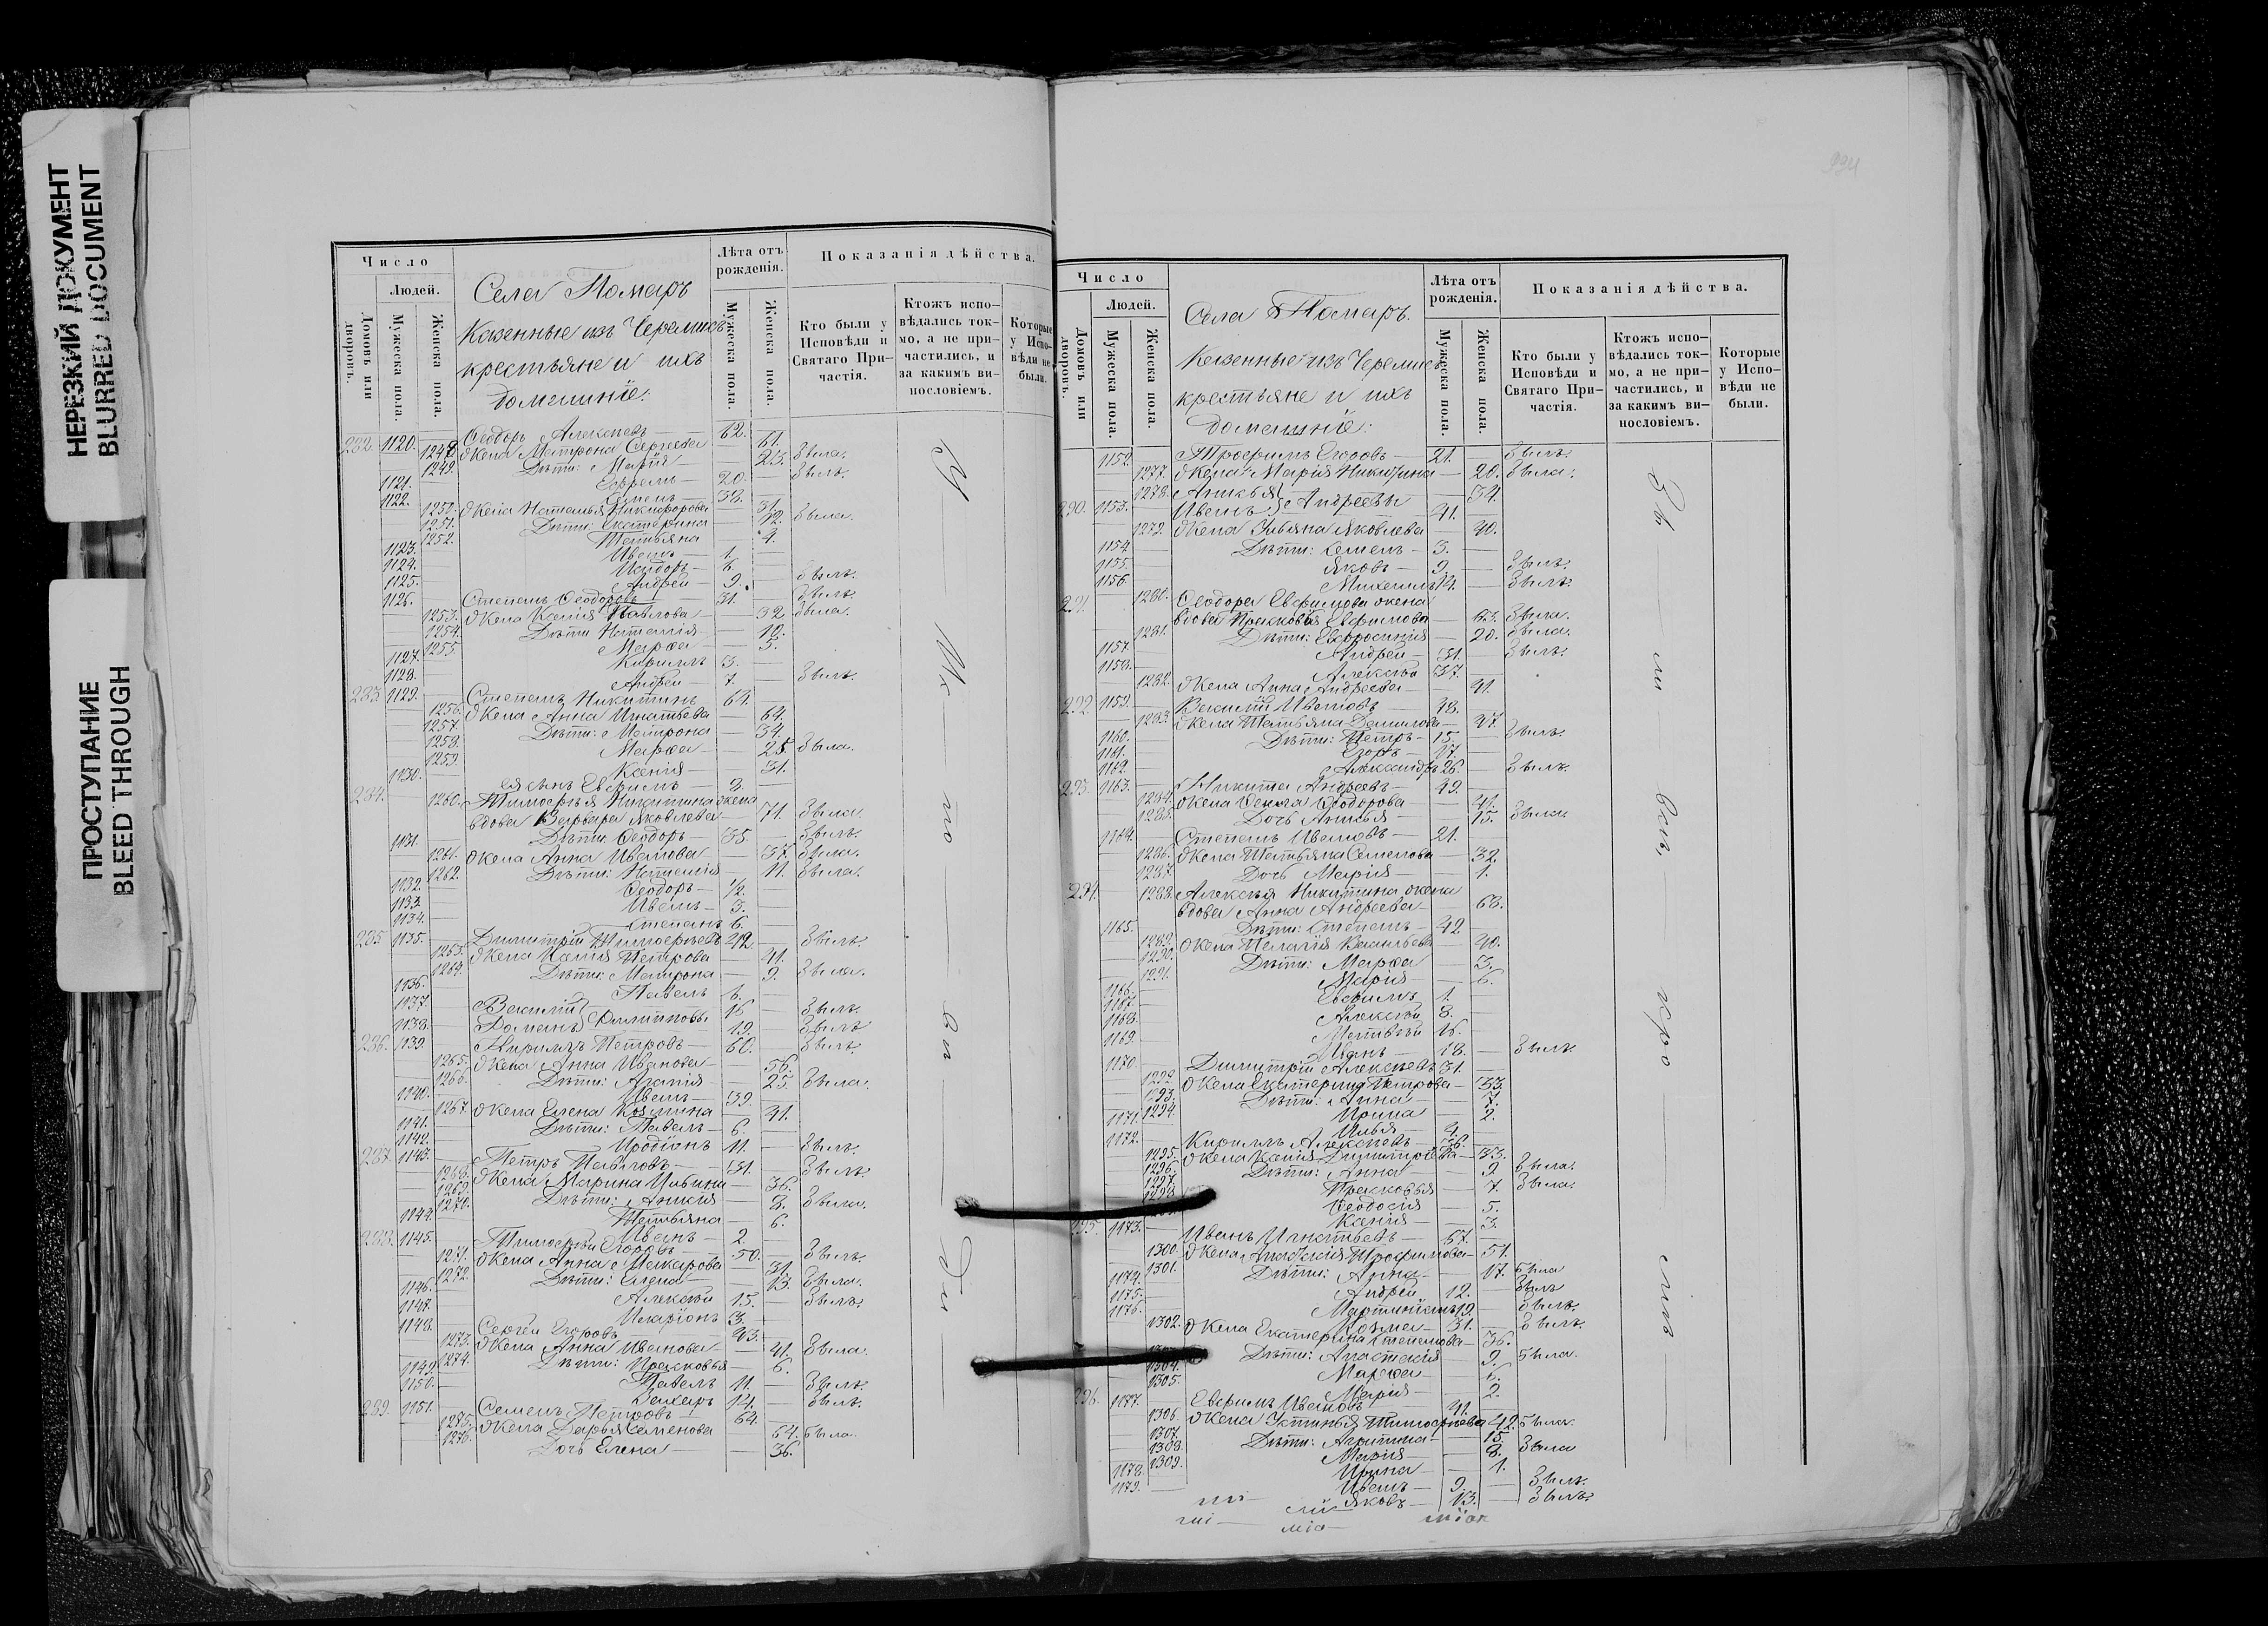 НЕРЕЗКИЙ ДОКУМЕНТ
BLURRED DOCUMENT
ПРОСТУПАНИЕ
BLEED THROUGH
Число
Людей.
Домовъ или дворовъ.
Мужеска пола.
Женска пола.
Села Помаръ
Казенные изъ Черемисъ
крестьяне и ихъ
домашніе:
Лѣта отъ рожденія.
Мужеска пола.
Женска пола.
Показанія дѣйства.
Кто были у Исповѣди и Святаго Причастія.
Ктожъ исповѣдались токмо, а не причастились, и за какимъ винословіемъ.
Которые у Исповѣди не были.
282. 1120. Ѳеодоръ Алексѣевъ 62.
1248 Жена Матрона Сергѣева 61.
1249. Дѣти: Марія 25. была.
1121. Ефремъ 20. былъ.
1122. 38.
1250. Жена Наталья Никифорова 31.
1251. Дѣти: Екатерина 12. была.
1252. Татьяна 4.
1123. Иванъ 1.
1124. Исидоръ 6
1125. Андрей 9. былъ.
1126. Степанъ Ѳеодоровъ 31. былъ.
1253. Жена Ксенія Павлова 32 была.
1254. Дѣти Наталія 10.
1255. Марѳа 5.
1127. Кириллъ 3.
1128. Андрей 7. былъ.
283. 1129. Степанъ Никитинъ 61.
1256. Жена Анна Игнатьева 64.
1257. Дѣти: Матрона 34.
1258. Марѳа 25. была.
1259. Ксенія 31.
1130. ея сынъ Евфимъ 2.
284. 1260. Тимоѳея Никитина жена
вдова Варвара Яковлева 71. была.
1131. Дѣти Ѳеодоръ 35. былъ.
1261. Жена Анна Иванова 37. была.
1262. Дѣти: Наталія 11. была.
1132. Ѳеодоръ 1/2.
1133. Иванъ 3.
1134. Степанъ 6.
285 1135. Димитрій Тимоѳеевъ 42. былъ.
1263. Жена Ксенія Петрова 41.
1264. Дѣти: Матрона 9. была.
1136. Павелъ 6.
1137. Василій 16 былъ.
1138. Романъ Филипповы 19. былъ
286. 1139. Кириллъ Петровъ 60. былъ.
1265. Жена Анна Иванова 56.
1266. Дѣти: Агапія 25. была.
1140. Иванъ 39.
1267. Жена Елена Козмина 41.
1141. Дѣти: Павелъ 6.
1142. Иродіонъ 11. былъ.
287. 1143. Петръ Павловъ 31. былъ.
1268. Жена Марина Ильина 36.
1269. Дѣти: Анисія 8. была.
1270. Татьяна 6.
1144. Иванъ 2.
288. 1145. Тимоѳей Егоровъ 50. былъ.
1271. Жена Анна Макарова 31.
1272. Дѣти: Елена 13. была.
1146. Алексѣй 15. былъ.
1147. Иларіонъ 3.
1148. Сергѣй Егоровъ 43.
1273. Жена Анна Иванова 41. была.
1274. Дѣти: Прасковья 6.
1149. Павелъ 11. былъ.
1150. Захаръ 14. былъ.
289. 1151. Семенъ Петровъ 64.
1275. Жена Дарья Семенова 64. была.
1276. Дочь Елена 36.
Число
Людей.
Домовъ или дворовъ.
Мужеска пола.
Женска пола.
Села Помаръ.
Казенные изъ Черемисъ
крестьяне и ихъ
домашніе:
Лѣта отъ рожденія.
Мужеска пола.
Женска пола.
Показанія дѣйства.
Кто были у Исповѣди и Святаго Причастія.
Ктожъ исповѣдались токмо, а не причастились, и за какимъ винословіемъ.
Которые у Исповѣди не были.
1152. Трофимъ Егоровъ 21. былъ.
1277. Жена Марія Никитина 20. была.
1278. 34.
290. 1153. Иванъ Андреевы 41.
1279. Жена Ульяна Яковлева 40.
1154 Дѣти: Семенъ 3.
1155. Яковъ 9. былъ.
1156. Михаилъ 14. былъ.
291. 1280. Ѳеодора Евфимова жена
вдова Прасковья Евфимова 63. была.
1281. Дѣти: Евфросинія 20. была.
1157. Андрей 31. былъ.
1158. Алексѣй 37.
1282. Жена Анна Андреева 41.
292. 1159. Василій Ивановъ 48.
1283. Жена Татьяна Данилова 47.
1160. Дѣти: Петръ 15. былъ.
1161. Егоръ 17
1162. Александръ 26. былъ.
293. 1163. Никита Андреевъ 49.
1284. Жена Ѳекла Ѳеодорова 41.
1285. Дочь 15. была.
1164. Степанъ Ивановъ 21.
1286. Жена Татьяна Семенова 32.
1287. Дочь Марія 1.
294. 1288. Алексѣя Никитина жена
вдова Анна Андреева 68.
1165. Дѣти: Степанъ 42.
1289. Жена Пелагія Васильева 40.
1290. Дѣти: Марѳа 3.
1291. Марія 6.
1166. Евфимъ 1.
1167. Алексѣй 3.
1168. Матвѣй 16.
1169. Иванъ 18. былъ.
1170. Димитрій Алексѣевъ 31.
1292 Жена Екатерина Петрова 33.
1293. Дѣти: Анна 7.
1294. Ирина 2.
1171. Илья 4.
1172. Кириллъ Алексѣевъ 36.
1295. Жена Ксенія Димитрова 33.
1296. Дѣти: Анна 9 была.
1297. Прасковья 7. была.
Ѳеодосія 5.
Ксенія 3.
295. 1173. Иванъ Игнатьевъ 67.
1300. Жена Анастасія Трофимова 51.
1301. Дѣти: Анна 17. была
1174. Андрей 12. былъ
1175. Мартиніанъ 19. былъ.
1176. Козма 31. былъ.
1302. Жена Екатерина Степанова 36.
Дѣти: Анастасія 9. была.
1304. Марѳа 6.
1305. Марія 2.
296. 1177. Евфимъ Ивановъ 41.
1306. Жена Устинья Тимоѳеева 42. была.
1307. Дѣти: 15.
1308. Марія 8. была
1309. Ирина 1.
1178. Иванъ 9. былъ.
1179. Яковъ 13. былъ.